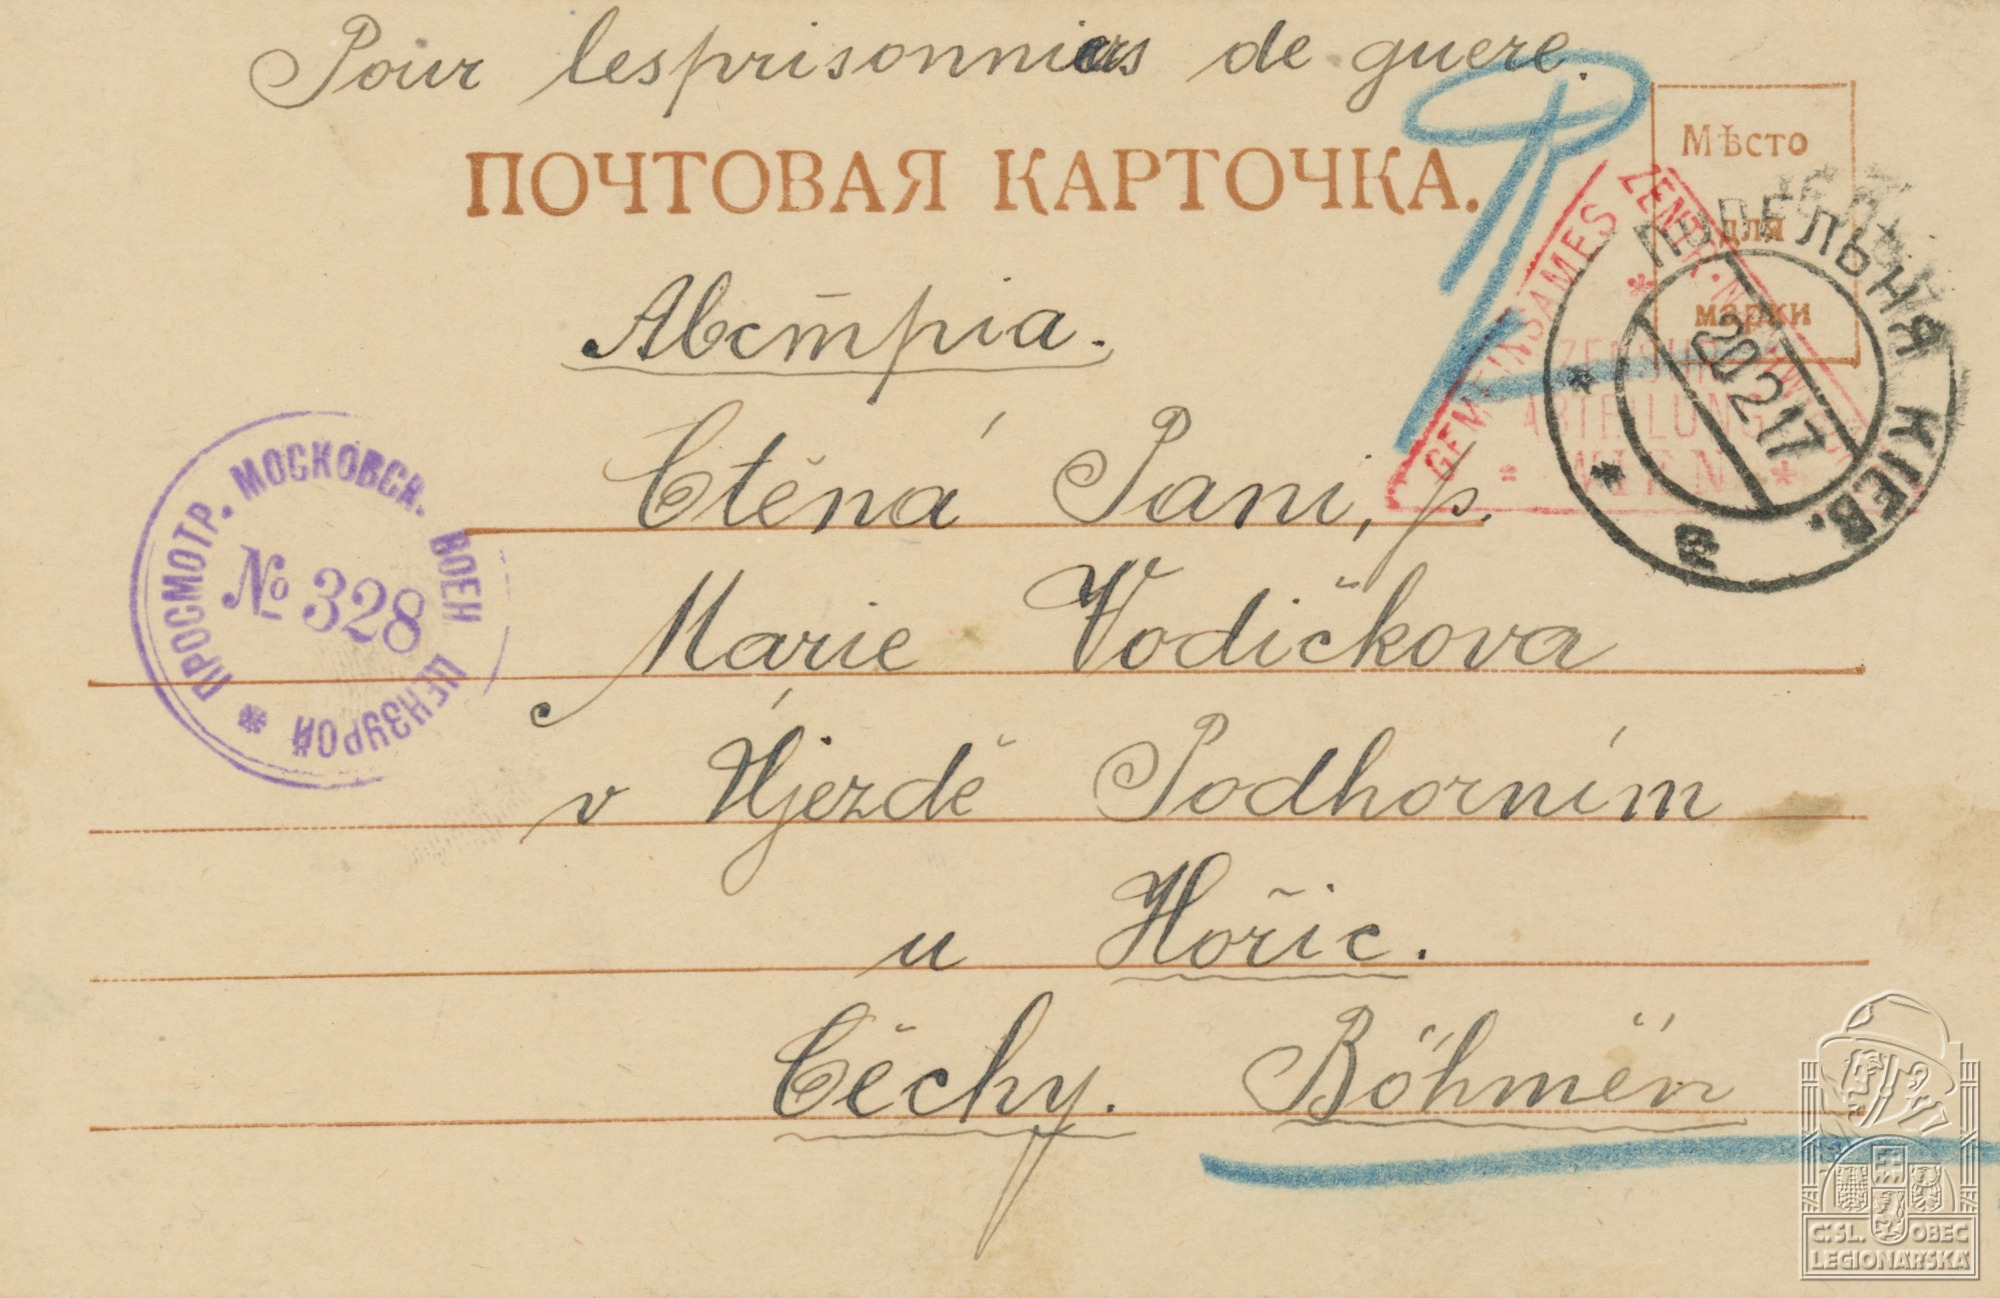 Pour lesprisonniers de guere.
ПОЧТОВАЯ КАРТОЧКА.
Мѣсто
для
марки
Австрія.
Ctěná Paní, p.
Marie Vodičkova
v Újezdě Podhorním
u Hořic.
Čechy. Böhmën
ПРОСМОТР. МОСКОВСК. ВОЕН ЦЕНЗУРОЙ
№ 328
GEMEINSAMES ZENTR.
ZENSUR
ABTEILUNG
WIEN
ПОПЕЛЬНЯ КІЕВ.
20217
з
Č.SL. OBEC
LEGIONÁŘSKÁ